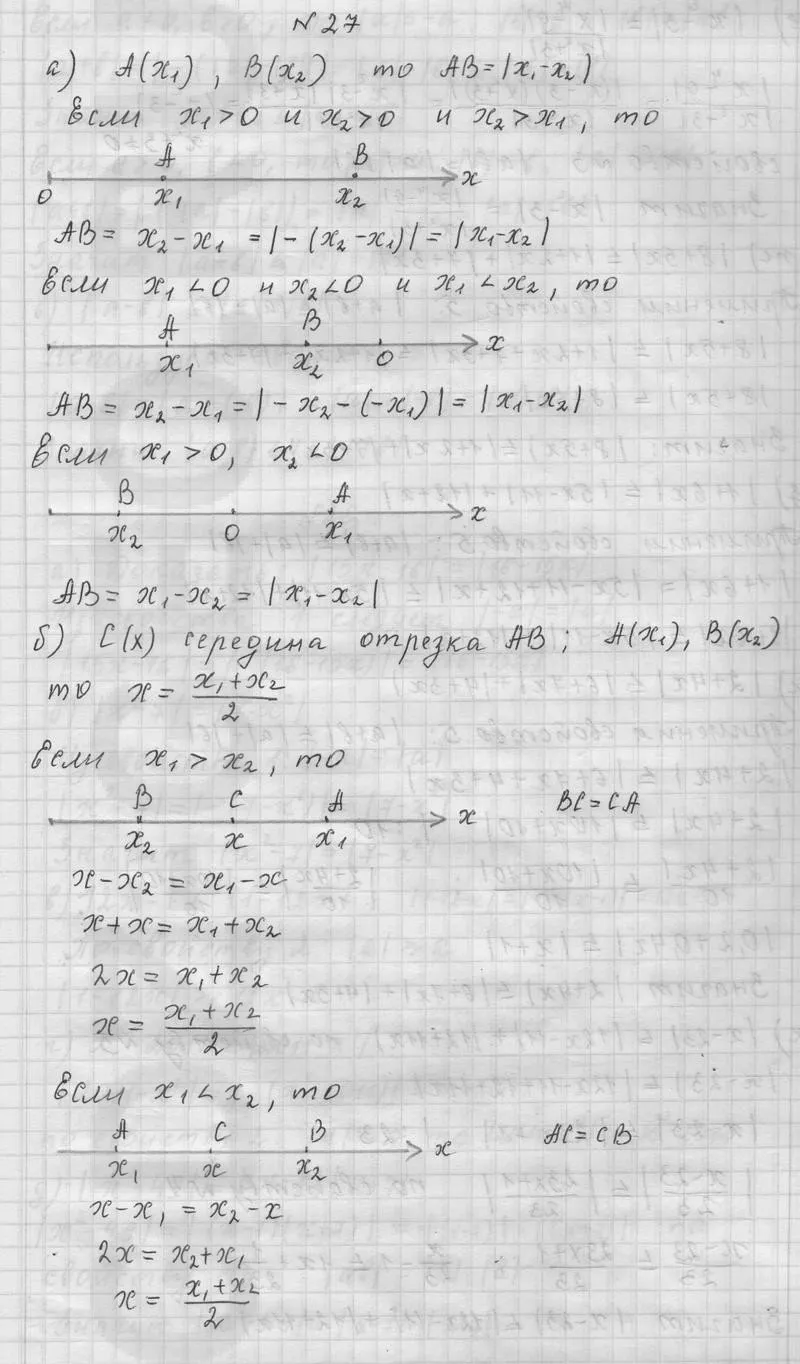 № 27
а) A(x₁), B(x₂) то AB = |x₁-x₂|
Если x₁>0 и x₂>0 и x₂>x₁, то
A B
0 x₁ x₂ x
AB = x₂-x₁ = |-(x₂-x₁)| = |x₁-x₂|
Если x₁<0 и x₂<0 и x₁<x₂, то
A B
x₁ x₂ 0 x
AB = x₂-x₁ = |-x₂-(-x₁)| = |x₁-x₂|
Если x₁>0, x₂<0
B A
x₂ 0 x₁ x
AB = x₁-x₂ = |x₁-x₂|
б) C(x) середина отрезка AB; A(x₁), B(x₂)
то x = (x₁+x₂)/2
Если x₁>x₂, то
B C A BC=CA
x₂ x x₁ x
x-x₂ = x₁-x
x+x = x₁+x₂
2x = x₁+x₂
x = (x₁+x₂)/2
Если x₁<x₂, то
A C B AC=CB
x₁ x x₂ x
x-x₁ = x₂-x
2x = x₂+x₁
x = (x₁+x₂)/2